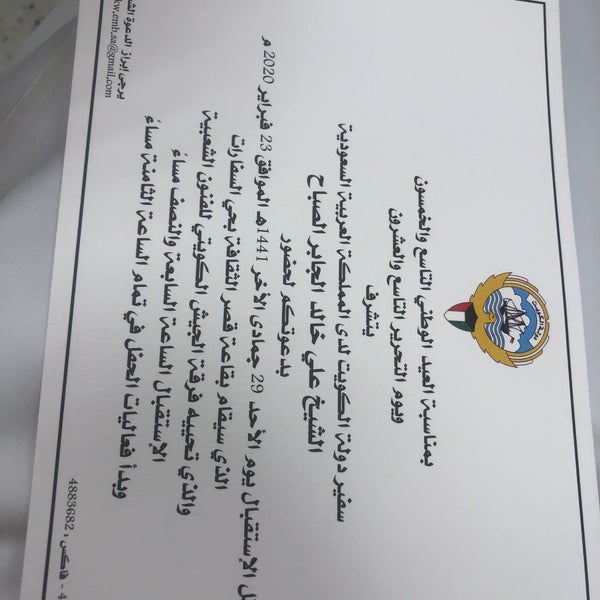 بمناسبة العيد الوطني التاسع والخمسون
ويوم التحرير التاسع والعشرون
يتشرف
سفير دولة الكويت لدى المملكة العربية السعودية
الشيخ علي خالد الجابر الصباح
بدعوتكم لحضور
الإستقبال يوم الأحد 29 جمادى الأخر 1441هـ الموافق 23 فبراير 2020 م
الذي سيقام بقاعة قصر الثقافة بحي السفارات
والذي تحييه فرقة الجيش الكويتي للفنون الشعبية
الإستقبال الساعة السابعة والنصف مساءً
وبدأ فعاليات الحفل في تمام الساعة الثامنة مساءً
يرجى إبراز الدعوة
kw.emb.sa@gmail.com
فاكس : 4883682